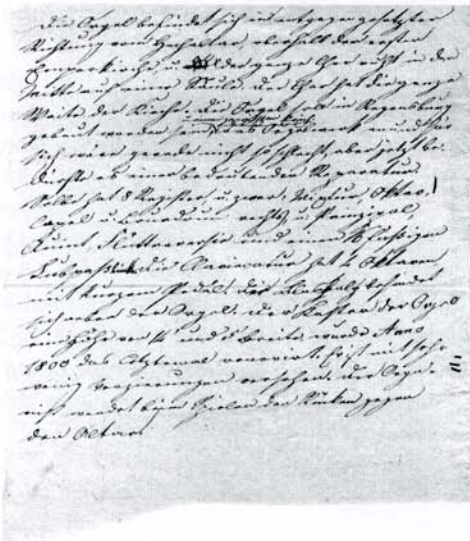 Die Orgel befindet sich in entgegen gesetzter
Richtung vom Hochaltar, oberhalb der ersten
Emporkirche, u. der ganze Chor ruht in der
Mitte auf einer Säule. Der Chor hat die ganze
Weite der Kirche. Die Orgel soll in Regensburg
gebaut worden sein. Das Orgelwerk an und für
sich wäre gerade nicht so schlecht, aber jetzt be-
dürfte es einer bedeutenden Reparatur.
Selbe hat 8 Register, u. zwar: Mixtur, Oktav,
Copel u. rechts, u. Prinzipal,
Quint, Flötte und einen 16 füßigen
Subpaß. Die Claviatur hat 4 Oktaven
mit kurzem Pedal. Der Blasbalg befindet
sich neben der Orgel. Der Kasten der Orgel
eine Höhe von 14 und 8' Breite, wurde Anno
1800 das letztemal renovirt, ist mit sehr
wenig Verzierungen versehen. Der Orga-
nist wendet beim Spielen den Rücken gegen
den Altar.